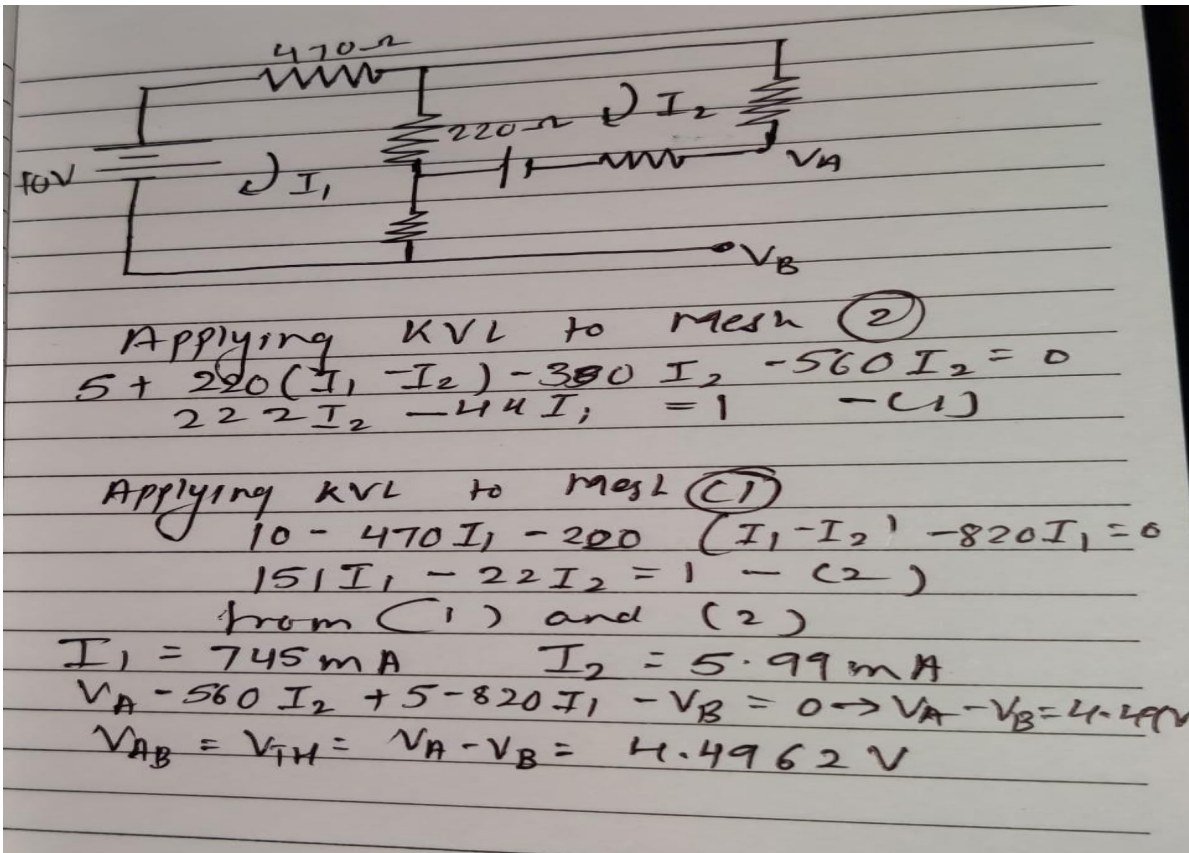 470Ω
220Ω I2
10V I1 VA
VB
Applying KVL to Mesh (2)
5 + 220(I1 - I2) - 330 I2 - 560 I2 = 0
222 I2 - 44 I1 = 1 - (1)
Applying KVL to Mesh (1)
10 - 470 I1 - 220 (I1 - I2) - 820 I1 = 0
151 I1 - 22 I2 = 1 - (2)
from (1) and (2)
I1 = 745 mA I2 = 5.99 mA
VA - 560 I2 + 5 - 820 I1 - VB = 0 → VA - VB = 4.49V
VAB = VTH = VA - VB = 4.4962 V